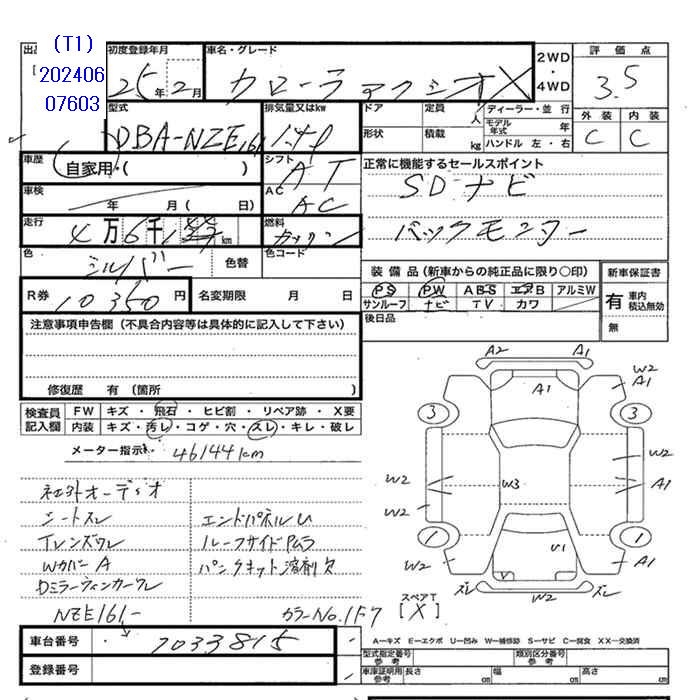 (T1)
202406
07603
出品
初度登録年月
25年2月
車名・グレード
カローラ アクシオ X
2WD
・
4WD
評価点
3.5
外装 内装
C C
型式
DBA-NZE161
排気量又はkw
ドア
定員 人
ディーラー・並行
モデル年式 年
形状
積載 kg
ハンドル 左・右
車歴
自家用・( )
シフト
AT
正常に機能するセールスポイント
SDナビ
バックモニター
車検
年 月 ( 日)
AC
AC
走行
4万6千 km
燃料
ガソリン
色
シルバー
色替
色コード
装備品(新車からの純正品に限り〇印)
PS PW ABS エアB アルミW
サンルーフ ナビ TV カワ
新車保証書
有 車内積込無効
無
R券
10350円
名変期限 月 日
後日品
注意事項申告欄(不具合内容等は具体的に記入して下さい)
修復歴 有(箇所 )
検査員記入欄
FW キズ・飛石・ヒビ割・リペア跡・X要
内装 キズ・汚レ・コゲ・穴・スレ・キレ・破レ
メーター指示 46144km
社外オーディオ
シートスレ
エンドパネルU
Tレンズワレ
ルーフサイドPムラ
WカバーA
パンクキット溶剤欠
Dミラーウィンカーワレ
NZE161-
カラーNo.1F7
A2 A1
A1
W2
A1
3 3
W2
W2
W3
W2
A1
1 1
U1
W2
A1
スレ
W2
スレ
スペアT
[X]
車台番号
7033815
登録番号
A―キズ E―エクボ U―凹み W―補修跡 S―サビ C―腐食 XX―交換済
型式指定番号
参考
類別区分番号
参考
車庫証明用
参考
長さ cm 幅 cm 高さ cm